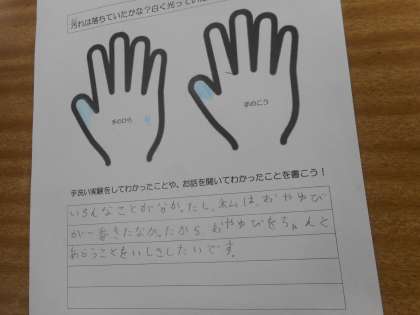 汚れは落ちていたかな？白く光ってい
手のひら
手のこう
手洗い実験をしてわかったことや、お話を聞いてわかったことを書こう！
いろんなことが分かったし、私は、おやゆび
が一番きたなかったから おやゆびをちゃんと
あらうことをいしきしたいです。